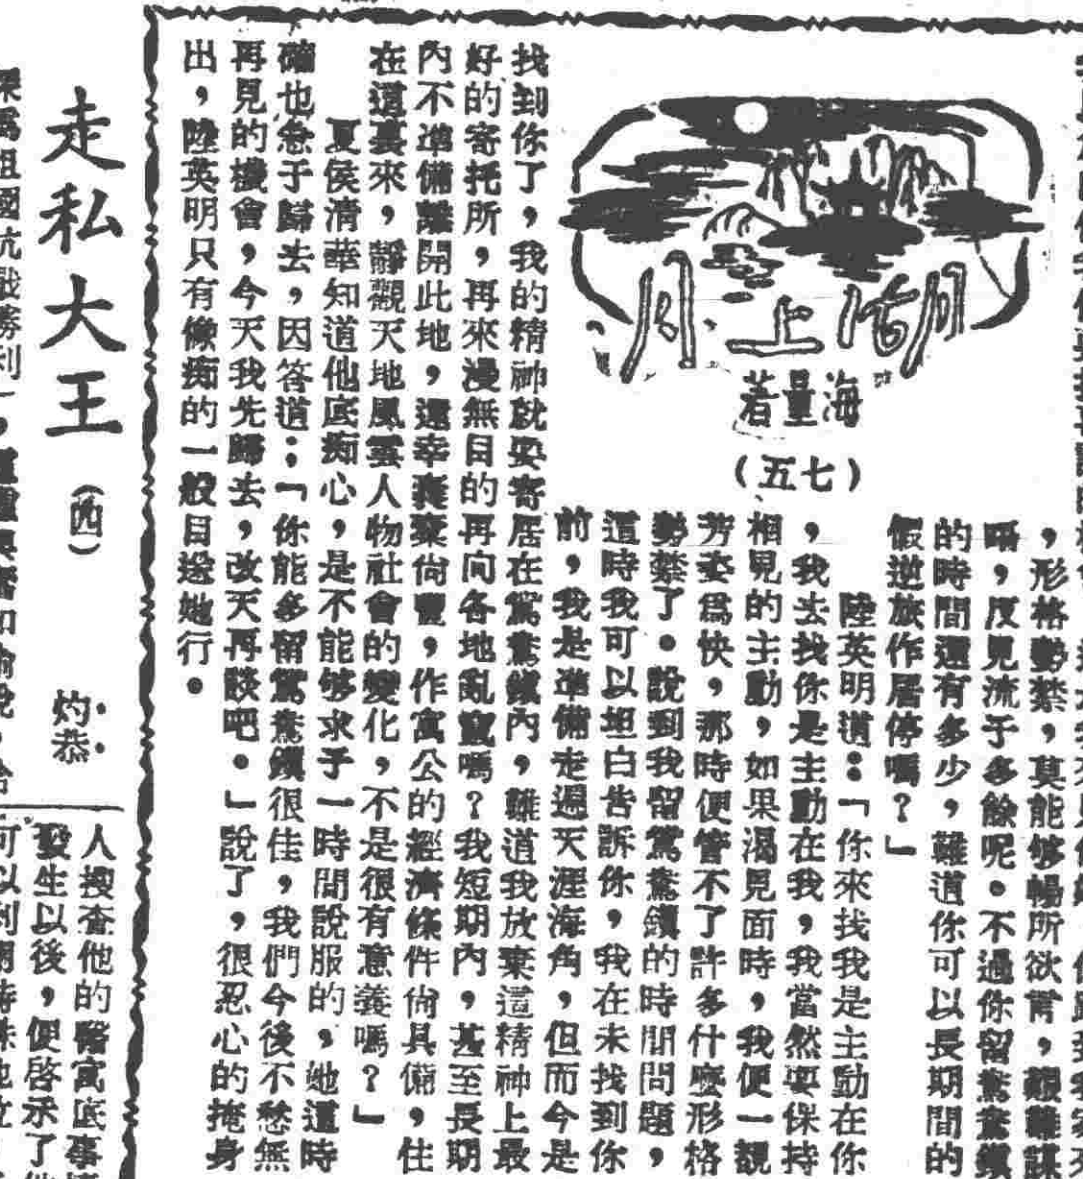 海量若
(五七)
,形格勢禁,莫能够暢所欲言,艱難謀
晤,反見流于多餘呢。不過你留鴛鴦鎮
的時間還有多少,難道你可以長期間的
假逆旅作居停嗎?」
陸英明道:「你來找我是主動在你
,我去找你是主動在我,我當然要保持
相見的主動,如果渴見面時,我便一覩
芳姿爲快,那時便管不了許多什麽形格
勢禁了。說到我留鴛鴦鎮的時間問題,
這時我可以坦白告訴你,我在未找到你
前,我是準備走遍天涯海角,但而今是
找到你了,我的精神就要寄居在鴛鴦鎮內,難道我放棄這精神上最
好的寄托所,再來漫無目的再向各地亂竄嗎?我短期內,甚至長期
內不準備離開此地,還幸囊橐尙豐,作寓公的經濟條件尙具備,住
在這裏來,靜觀天地風雲人物社會的變化,不是很有意義嗎?」
夏侯清華知道他底痴心,是不能够求予一時間說服的,她這時
確也急于歸去,因答道:「你能多留鴛鴦鎮很佳,我們今後不愁無
再見的機會,今天我先歸去,改天再談吧。」說了,很忍心的掩身
出,陸英明只有像痴的一般目送她行。
走私大王
(四)
灼恭
人搜查他的醫寓底事
發生以後,便啓示了